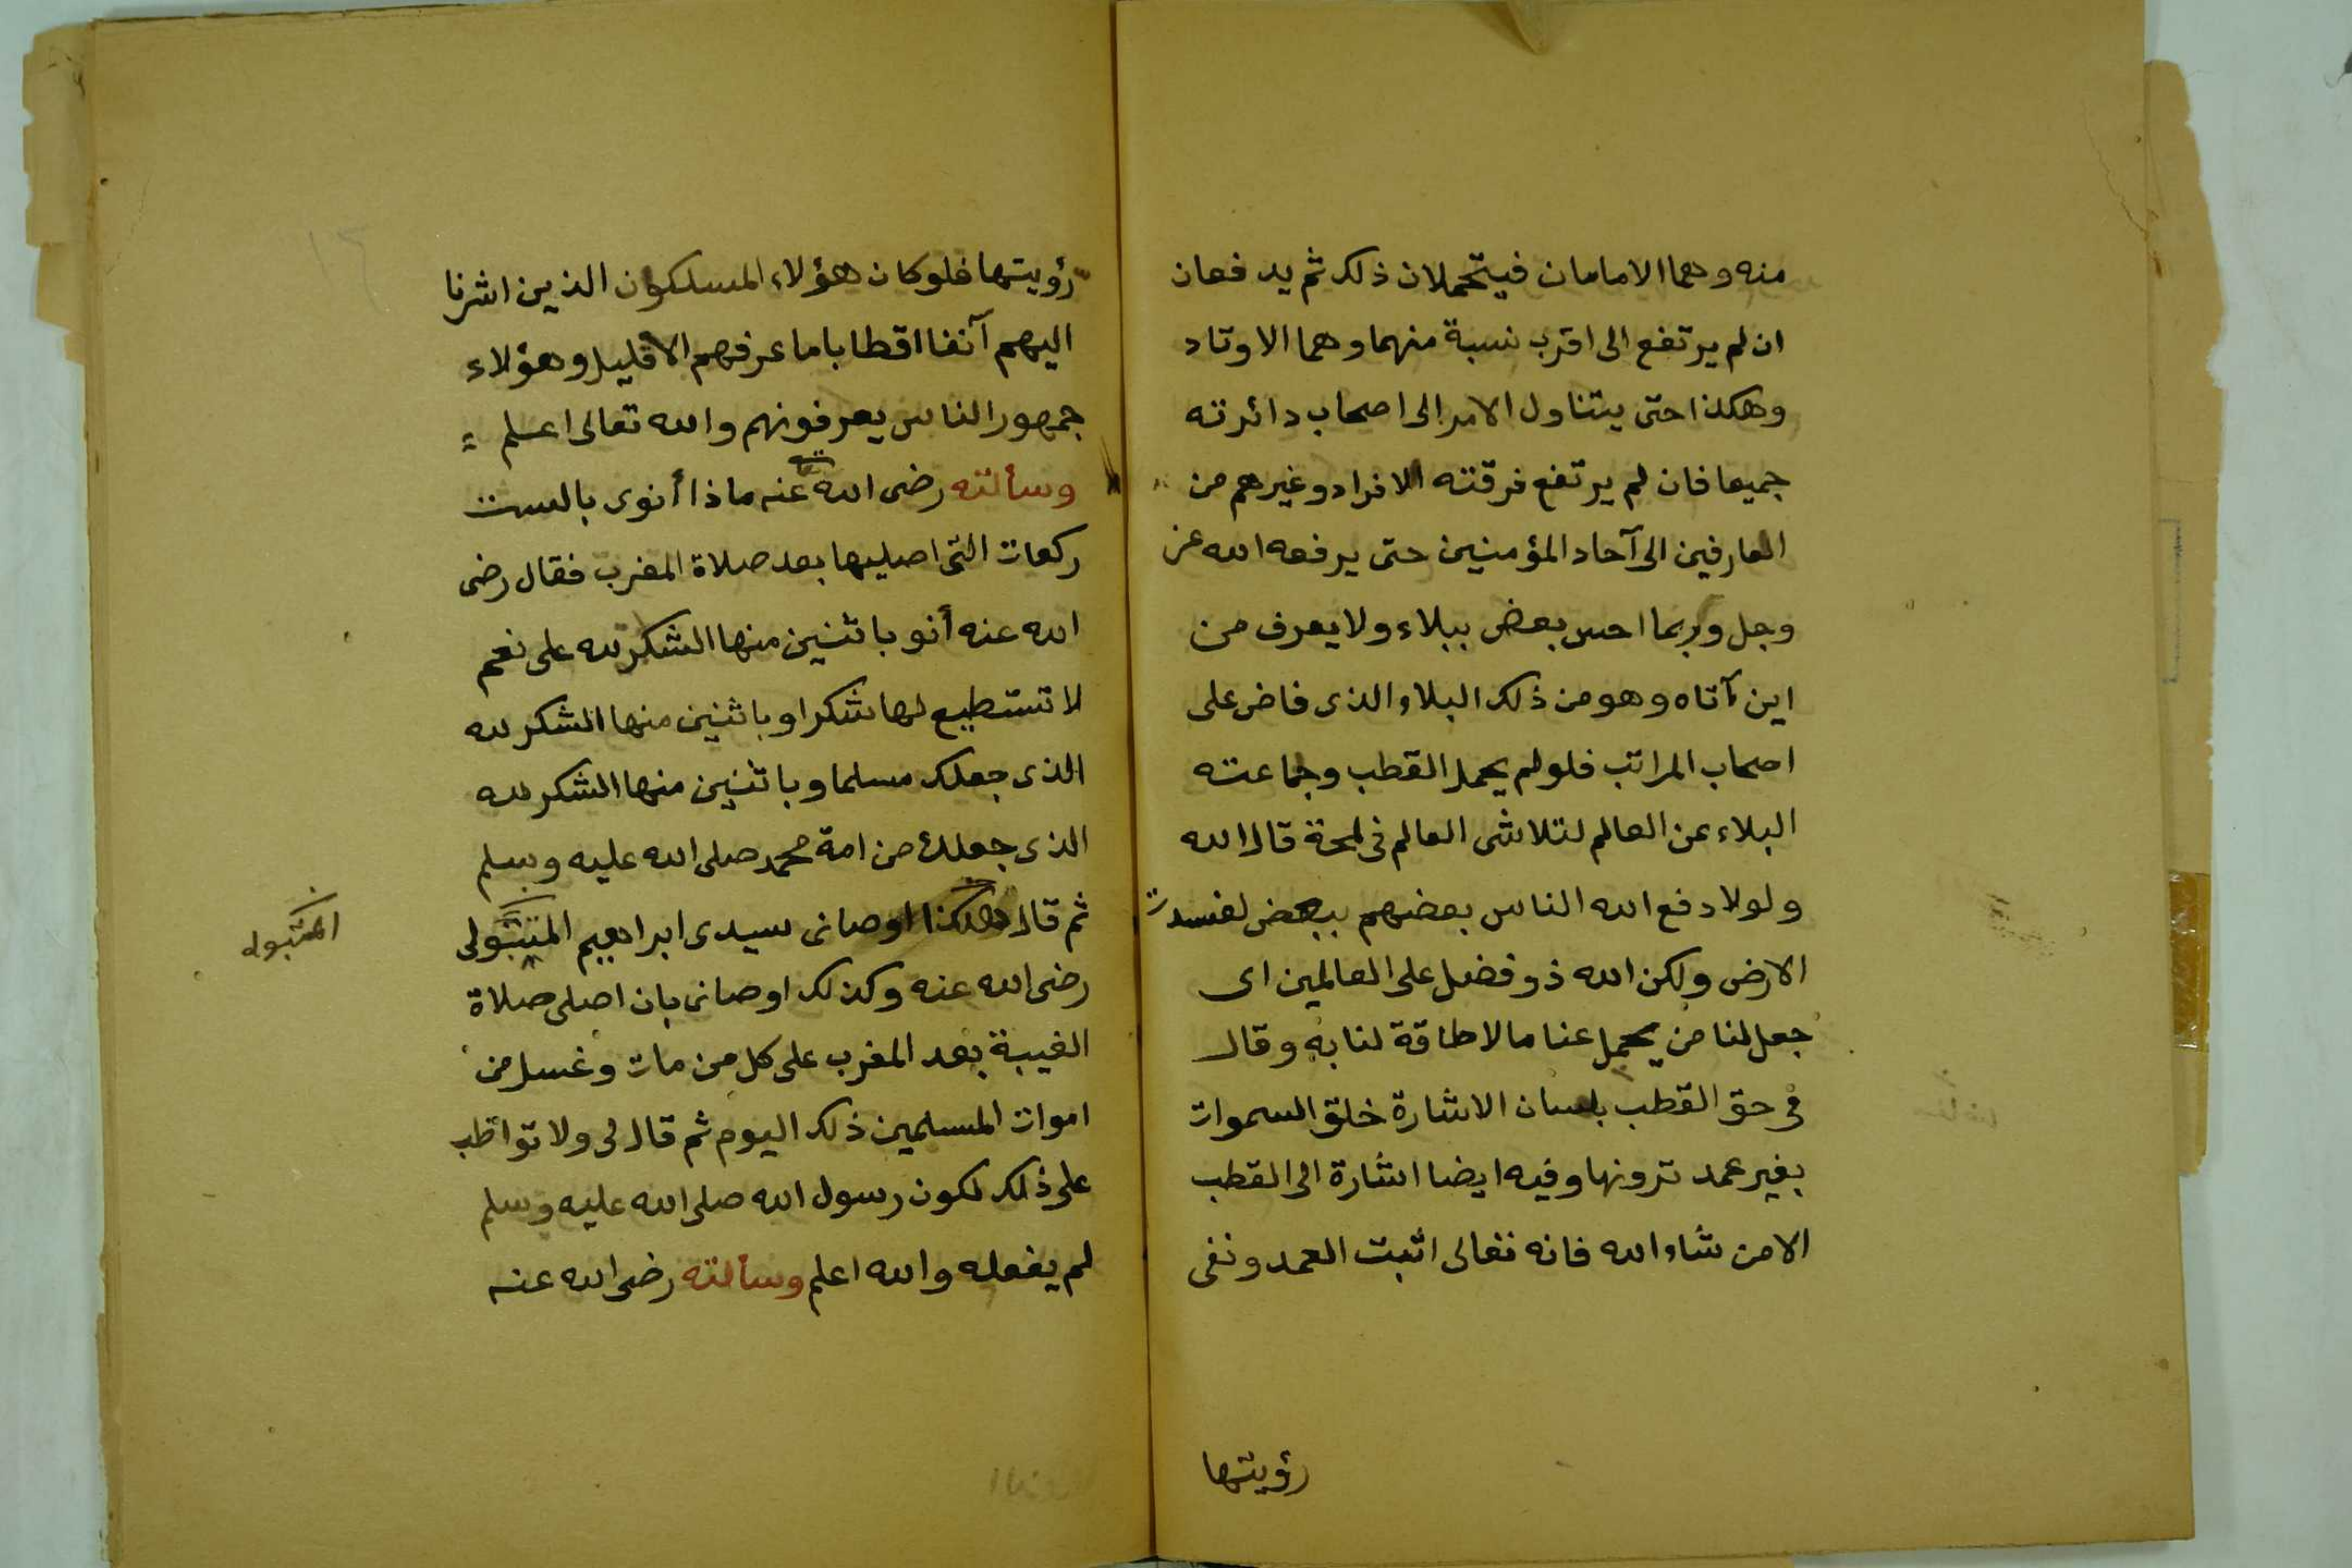 منه وهما الامامان فيتحملان ذلك ثم يدفعان
ان لم يرتفع الى اقرب نسبة منهما وهما الاوتاد
وهكذا حتى يتناول الامر الى اصحاب دائرته
جميعا فان لم يرتفع فرقته الافراد وغيرهم من
العارفين الى آحاد المؤمنين حتى يرفعه الله عز
وجل وربما احس بعض ببلاء ولا يعرف من
اين آتاه وهو من ذلك البلاء الذى فاض على
اصحاب المراتب فلو لم يحمل القطب وجماعته
البلاء عن العالم لتلاشى العالم فى لمحة قال الله
ولولا دفع الله الناس بعضهم ببعض لفسدت
الارض ولكن الله ذو فضل على العالمين اى
جعل لنا من يحمل عنا مالا طاقة لنا به وقال
فى حق القطب بلسان الاشارة خلق السموات
بغير عمد ترونها وفيه ايضا اشارة الى القطب
الا من شاء الله فانه تعالى اثبت العمد ونفى
رؤيتها
رؤيتها فلو كان هؤلاء المسلكون الذين اشرنا
اليهم آنفا اقطابا ما عرفهم الا قليل وهؤلاء
جمهور الناس يعرفونهم والله تعالى اعلم
وسألته رضى الله عنه ماذا أنوى بالست
ركعات التى اصليها بعد صلاة المغرب فقال رضى
الله عنه أنو باثنين منها الشكر لله على نعم
لا تستطيع لها شكرا وباثنين منها الشكر لله
الذى جعلك مسلما وباثنين منها الشكر لله
الذى جعلك من امة محمد صلى الله عليه وسلم
ثم قال هكذا اوصانى سيدى ابراهيم المتبولى
رضى الله عنه وكذلك اوصانى بان اصلى صلاة
الغيبة بعد المغرب على كل من مات وغسل من
اموات المسلمين ذلك اليوم ثم قال لى ولا تواظب
على ذلك لكون رسول الله صلى الله عليه وسلم
لم يفعله والله اعلم وسألته رضى الله عنه